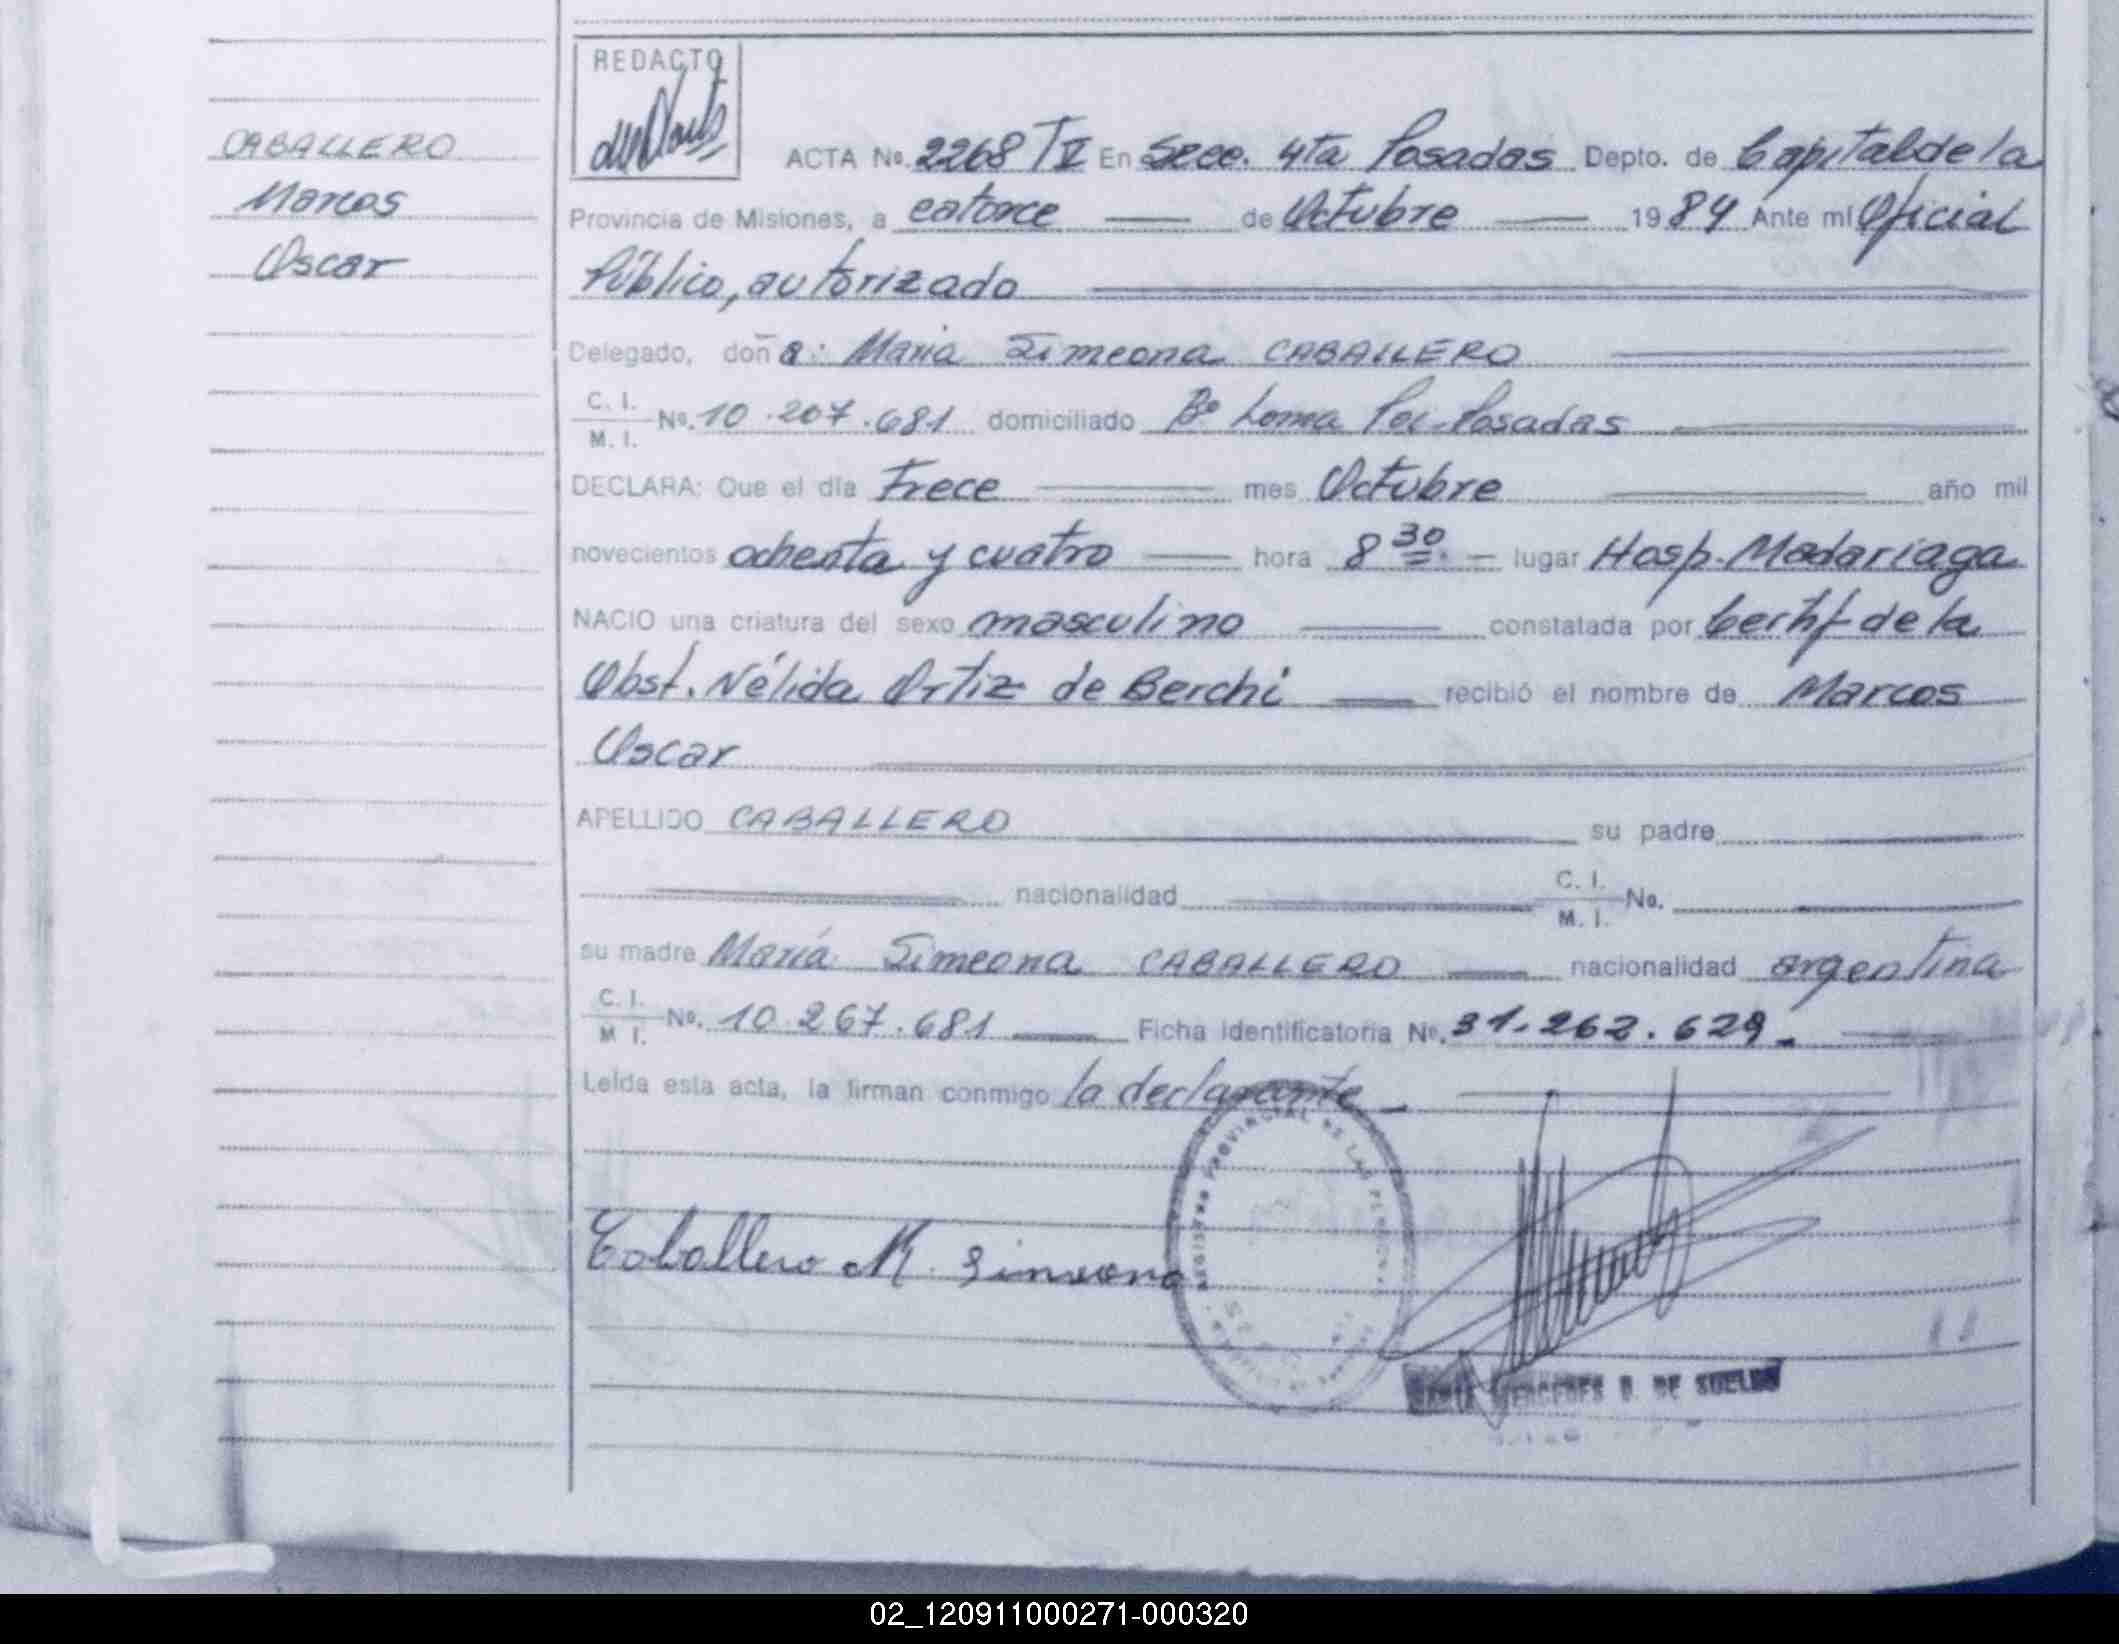 REDACTO
ACTA No. 2268 T V En Secc. 4ta Posadas Depto. de Capital de la
CABALLERO
Marcos
Oscar
Provincia de Misiones, a catorce de Octubre 1984 Ante mi Oficial
Público, autorizado
Delegado, doña: Maria Simeona CABALLERO
C. I.
M. I. No. 10.207.681 domiciliado Bº Loma Poi-Posadas
DECLARA: Que el día trece mes Octubre año mil
novecientos ochenta y cuatro hora 8 30 lugar Hosp. Madariaga
NACIO una criatura del sexo masculino constatada por Certif de la
Obst. Nélida Ortiz de Berchi recibió el nombre de Marcos
Oscar
APELLIDO CABALLERO su padre
nacionalidad C. I. M. I. No.
su madre María Simeona CABALLERO nacionalidad argentina
C. I.
M. I. No. 10.267.681 Ficha identificatoria No. 31.262.629.-
Leída esta acta, la firman conmigo la declarante
Caballero M. Simeona
REGISTRO PROVINCIAL DE LAS PERSONAS
MERCEDES B. DE SUELDO
02_120911000271-000320